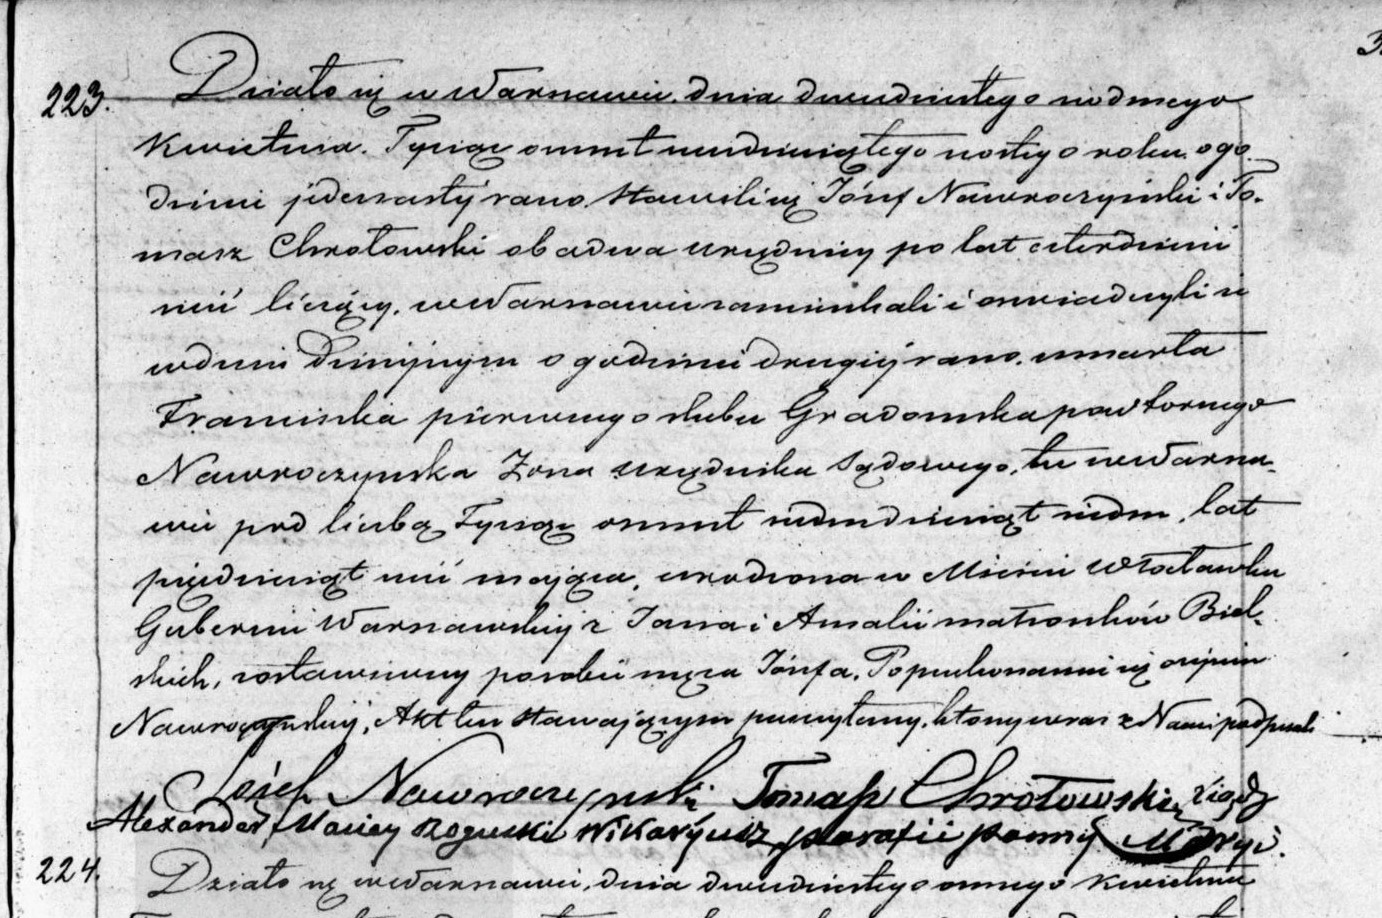 223. Działo się w Warszawie, dnia dwudziestego siodmego
Kwietnia. Tysiąc ośmset sześćdziesiątego szóstego roku, o go-
dzinie jedenastej rano. Stawili się Józef Nawroczyński i To-
masz Chrołowski obadwa urzędnicy po lat czterdzieści
sześć liczący, w Warszawie zamieszkali i oświadczyli że
w dniu dzisiejszym o godzinie drugiej rano, umarła
Franciszka pierwszego ślubu Gradomska powtórnego
Nawroczyńska Żona urzędnika Sądowego, tu w Warsza-
wie pod liczbą Tysiąc ośmset siedmdziesiąt siedm, lat
pięćdziesiąt sześć mająca, urodzona w Mieście Włocławku
Gubernii Warszawskiej z Jana i Amalii małżonków Biel-
skich, zostawiwszy po sobie męża Józefa. Po przekonaniu się o zejściu
Nawroczyńskiej, Akt ten stawającym przeczytany, który wraz z Nami podpisali
Józef Nawroczynski Tomasz Chrołowski xiądz
Alexander Maciey Rogulski Wikaryusz parafii Panny Maryi.
224. Działo się w Warszawie, dnia dwudziestego ósmego Kwietnia